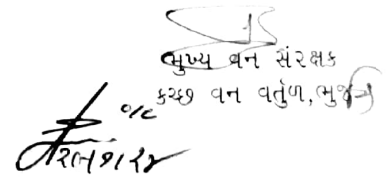 મુખ્ય વન સંરક્ષક
કચ્છ વન વર્તુળ, ભુજ
o/c